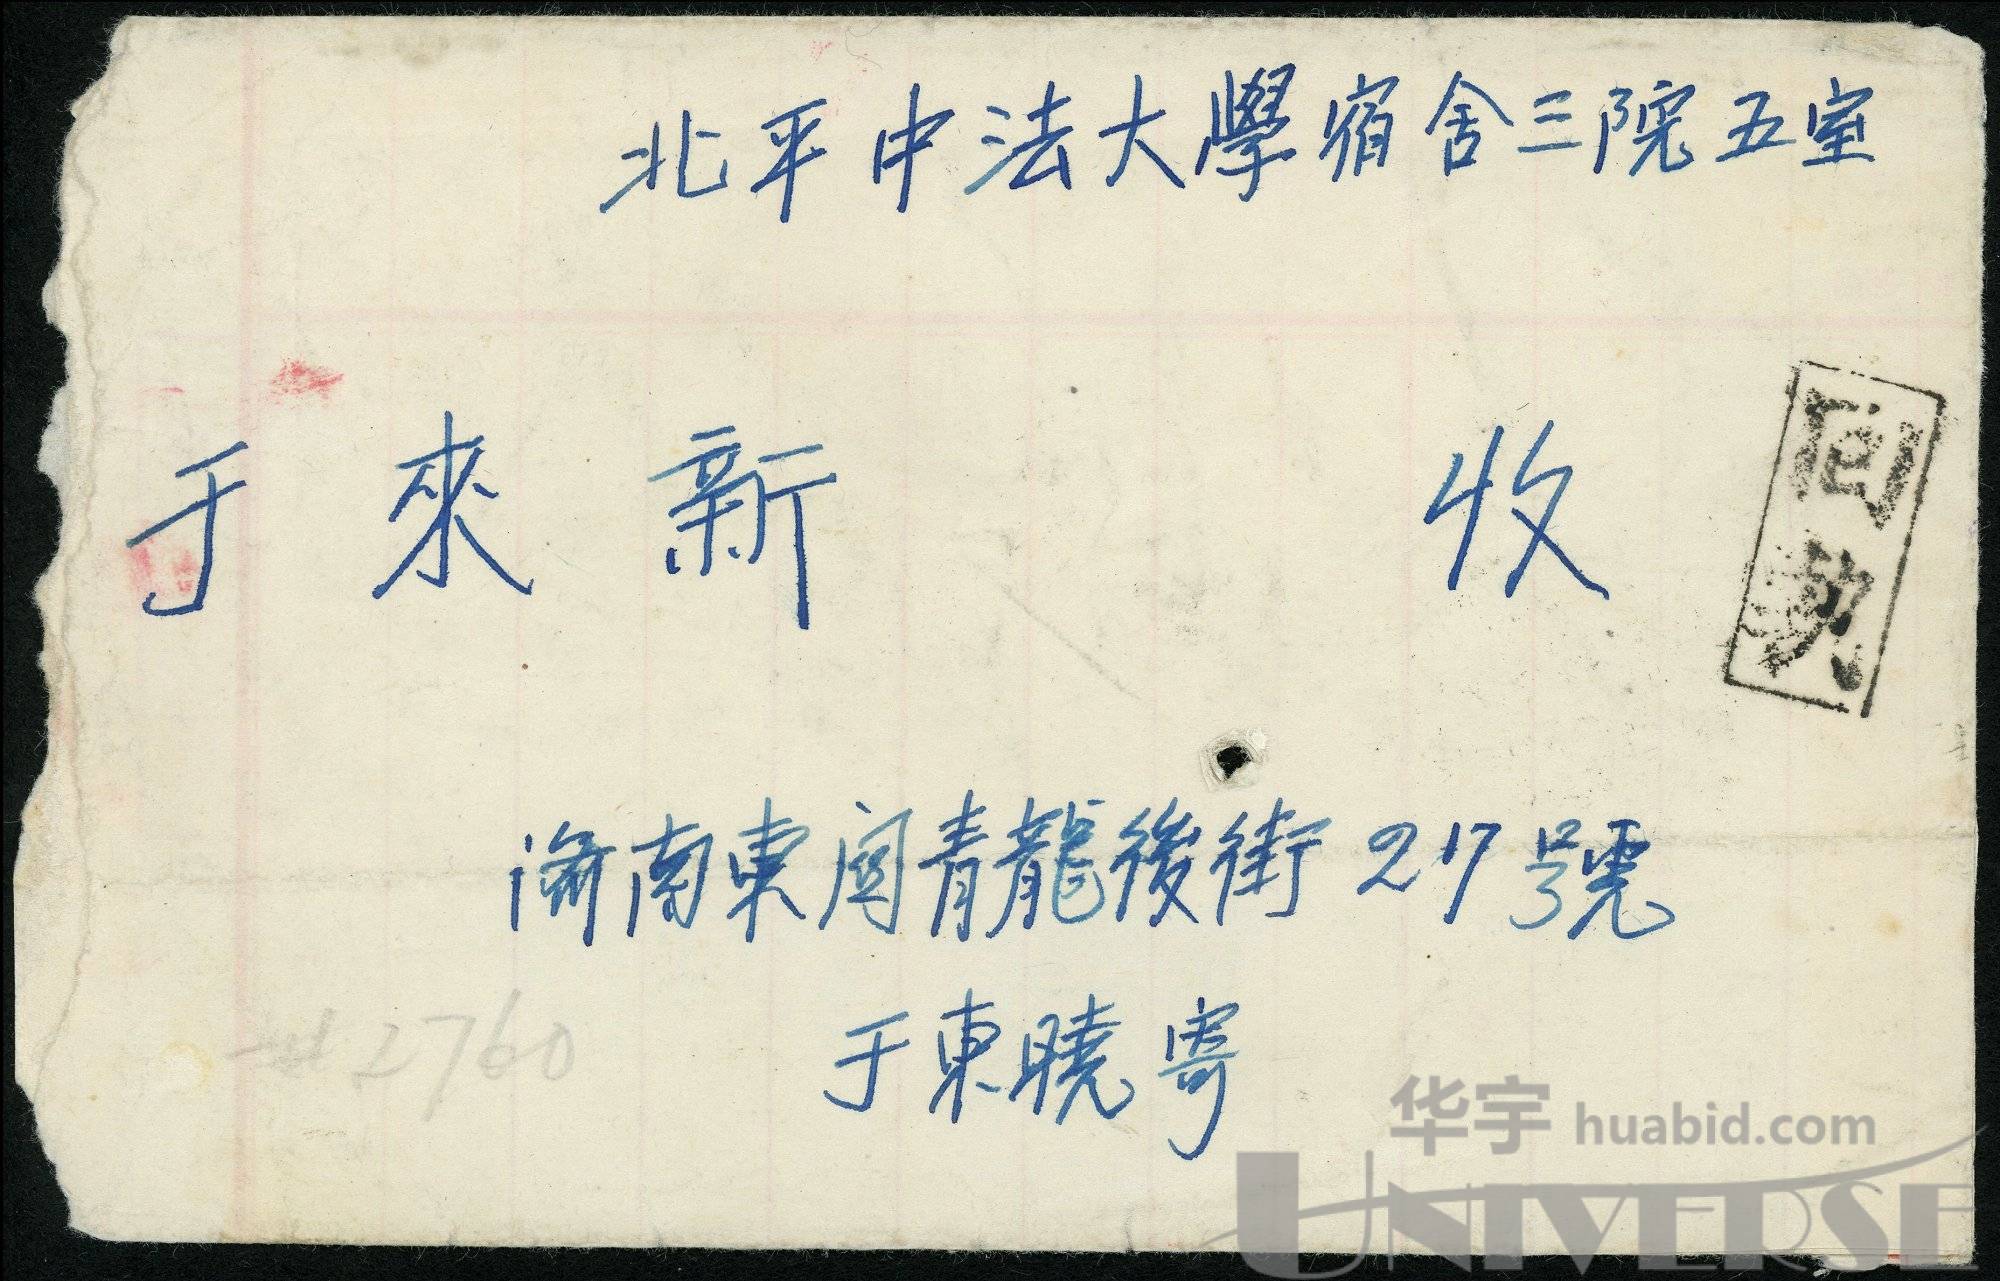 北平中法大學宿舍三院五室
于來新 收
回执
濟南東関青龍後街217號
于東曉寄
2760
华宇 huabid.com
UNIVERSE